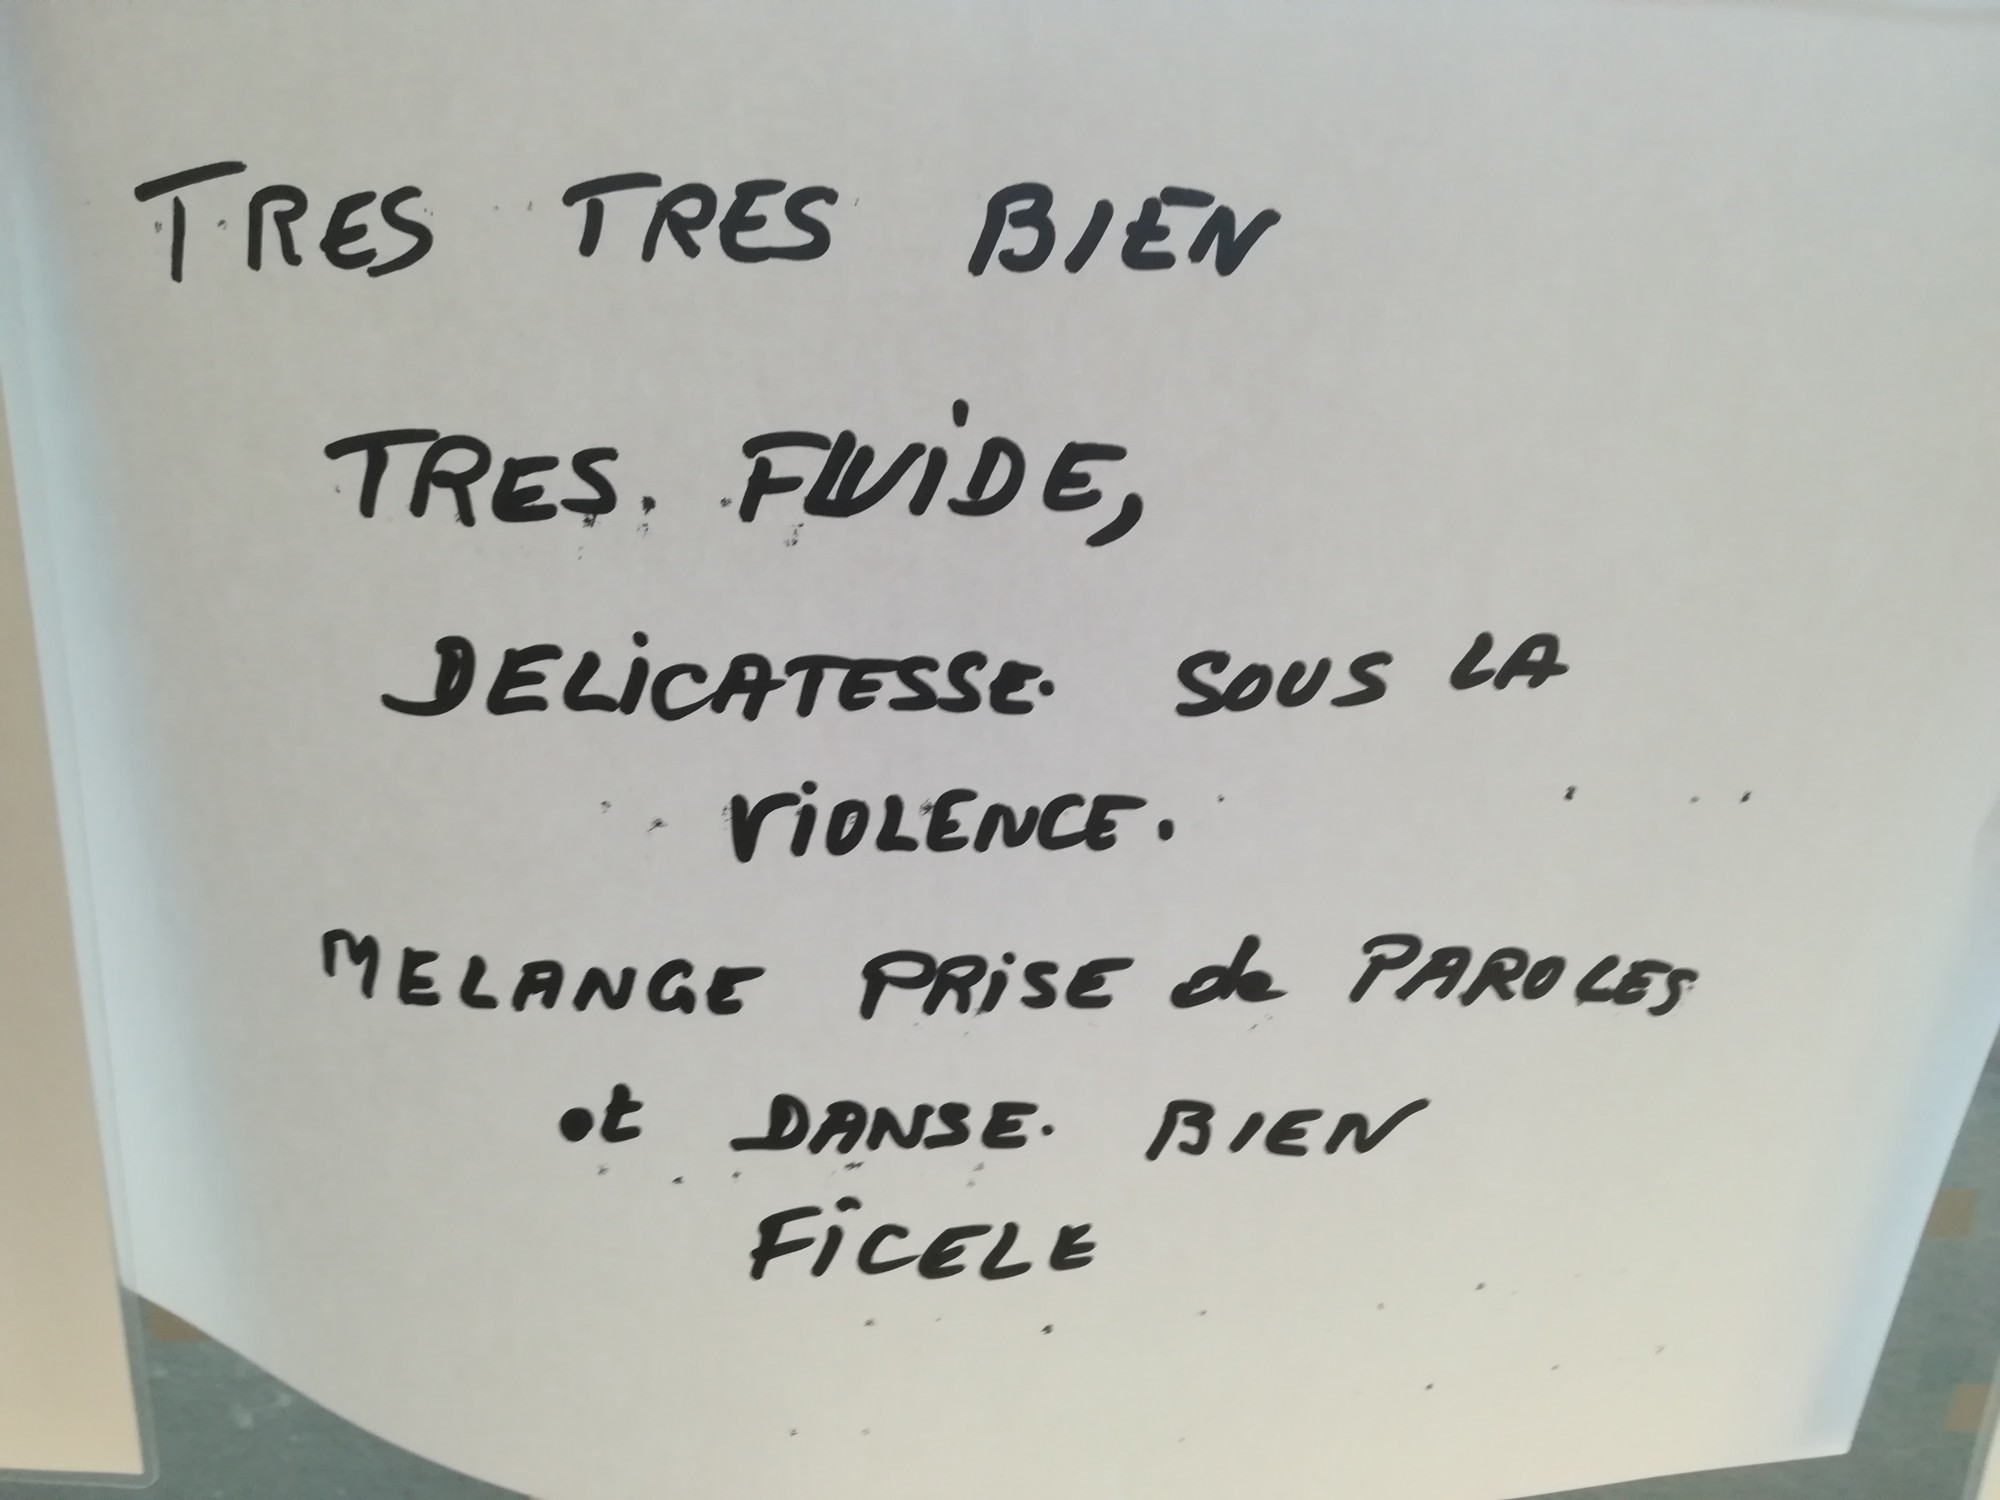 TRES TRES BIEN
TRES. FLUIDE,
DELICATESSE. SOUS LA
VIOLENCE.
MELANGE PRISE de PAROLES
et DANSE. BIEN
FICELE